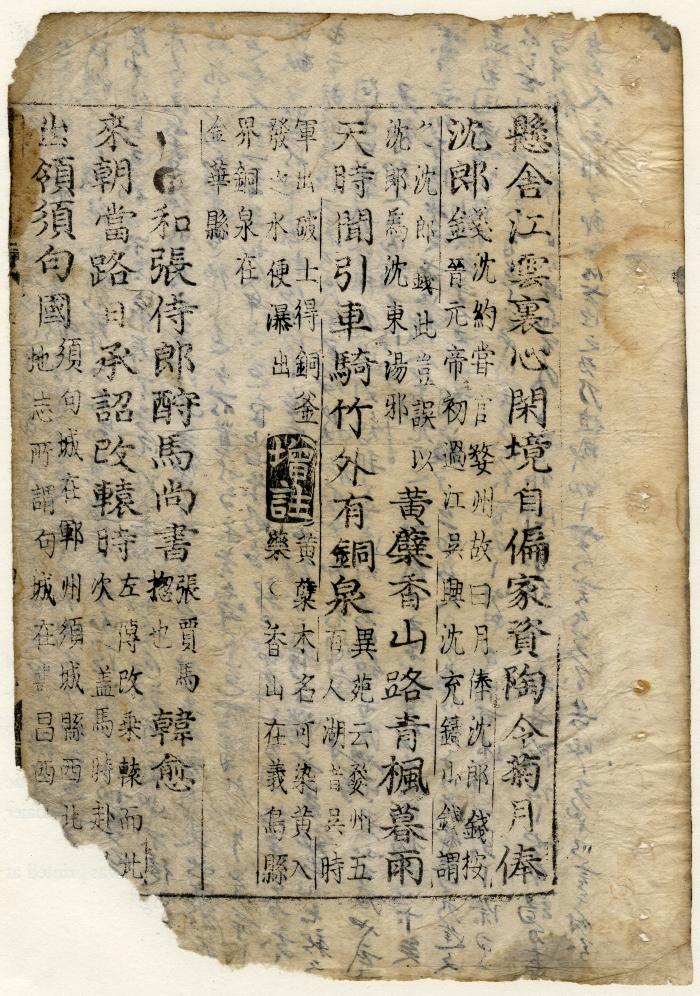 懸舍江雲裏心閑境自偏家資陶令菊月俸
沈郎錢沈約嘗官婺州故曰月俸沈郎錢按
晉元帝初過江吳興沈充鑄小錢謂
之沈郎錢此豈誤以
沈郎爲沈東湯邪
黃蘗香山路青楓暮雨
天時聞引車騎竹外有銅泉異苑云婺州五
百人湖昔吳時
軍出破土得銅釜
發之水便瀑出
增註
黃蘗木名可染黃入
藥香山在義烏縣
界銅泉在
金華縣
和張侍郎酧馬尚書張賈馬
揔也
韓愈
來朝當路日承詔改轅時左傳改乘轅而北
次盖馬時赴
出領須句國須句城在鄆州須城縣西北
地志所謂句城在昌西